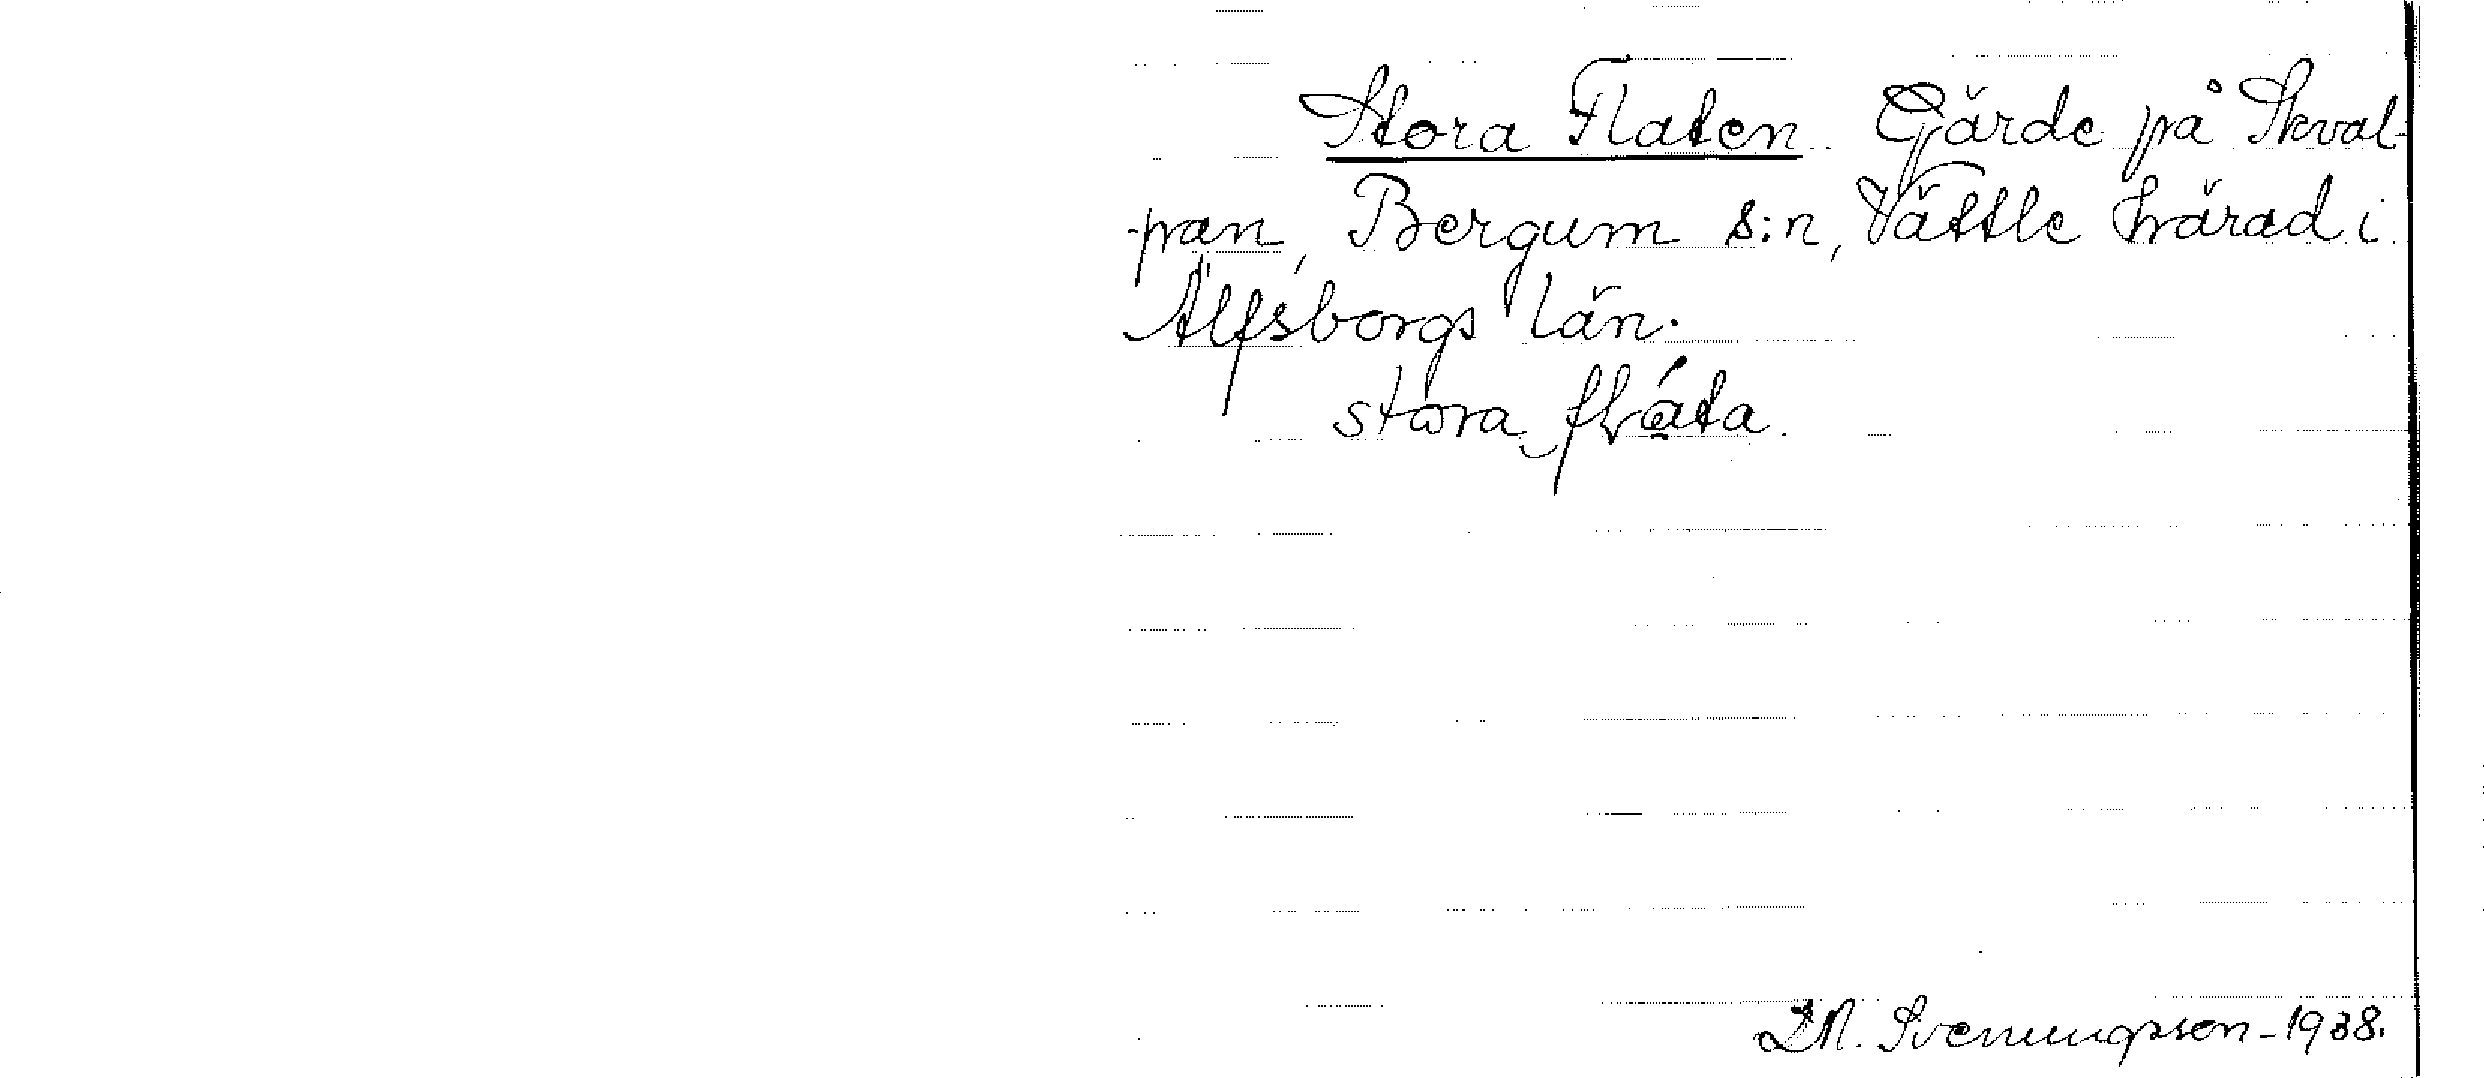 Stora Flaten. Gärde på Skval-
pan, Bergum s:n, Vättle härad i
Älfsborgs län.
stora flata.
D.N. Svenningsson-1938.